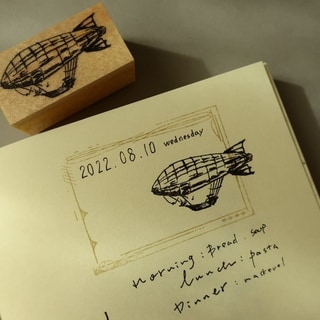 2022.08.10 wednesday
morning : Bread . soup
lunch : pasta
Dinner : mackerel